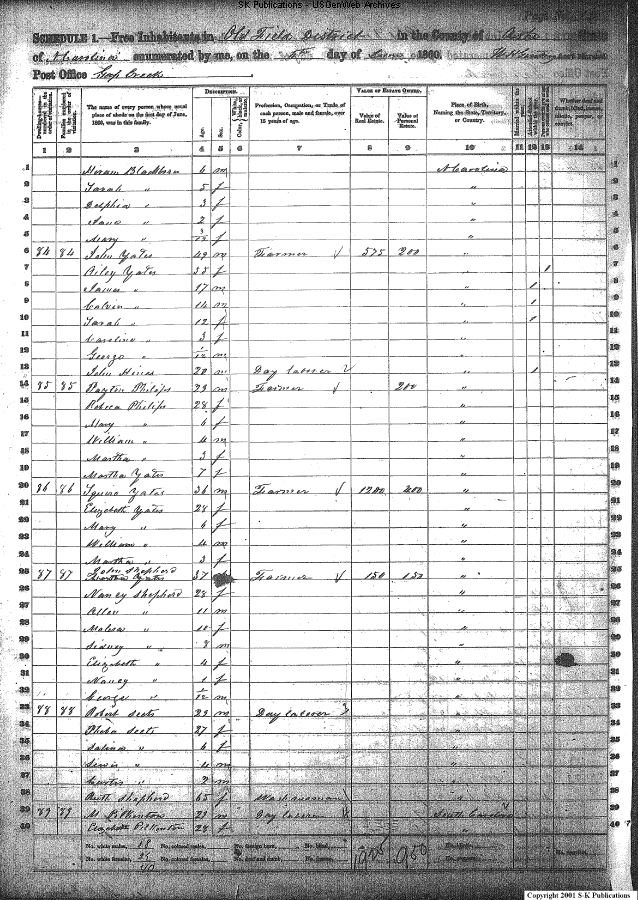 S-K Publications - USGenWeb Archives
SCHEDULE 1.—Free Inhabitants in Old Field District in the County of Ashe State
of N Carolina enumerated by me, on the day of June 1860.
Post Office Gap Creek
DESCRIPTION. VALUE OF ESTATE OWNED.
The name of every person whose usual place of abode on the first day of June, 1860, was in this family.
Age. Sex.
Profession, Occupation, or Trade of each person, male and female, over 15 years of age.
Value of Real Estate. Value of Personal Estate.
Place of Birth, Naming the State, Territory, or Country.
1 2 3 4 5 6 7 8 9 10 11 12 13 14
1 Hiram Blackburn 6 m N Carolina
2 Sarah " 5 f "
3 Delphia " 3 f "
4 " 2 f "
5 Mary " 3/12 f "
6 84 84 John Yates 49 m Farmer 575 200 "
7 Riley Yates 38 f " 1
8 James " 17 m " 1
9 Calvin " 14 m " 1
10 Sarah " 12 f " 1
11 Caroline " 3 f "
12 George " 1/12 m "
13 John Hines 20 m Day laborer " 1
14 85 85 Payton Philips 23 m Farmer 200 "
15 Rebeca Philips 28 f "
16 Mary " 6 f "
17 William " 4 m "
18 Martha " 3 f "
19 Martha Yates 7 f "
20 86 86 Squire Yates 36 m Farmer 1200 400 "
21 Elizabeth Yates 28 f "
22 Mary " 6 f "
23 William " 4 m "
24 Martha " 3 f "
25 87 87 John Shepherd 37 Farmer 150 150 "
26 Nancy Shepherd 28 f "
27 Allen " 11 m "
28 Malisa " 10 f "
29 Sidney " 8 m "
30 Elizabeth " 4 f "
31 Nancy " 1 f "
32 George " 1/12 m "
33 88 88 Robert Seets 23 m Day laborer "
34 Pheba Seets 27 f "
35 " 6 f "
36 Lewis " 4 m "
37 Curtis " 2 m "
38 Ruth Shepherd 65 f Washwoman "
39 89 89 M Pilkenton 23 m Day laborer South Carolina
40 Elizabeth Pilkenton 28 f
No. white males, 18 No. colored males, No. foreign born, No. blind,
No. white females, No. colored females, No. deaf and dumb, No. insane,
1925 950
Copyright 2001 S-K Publications